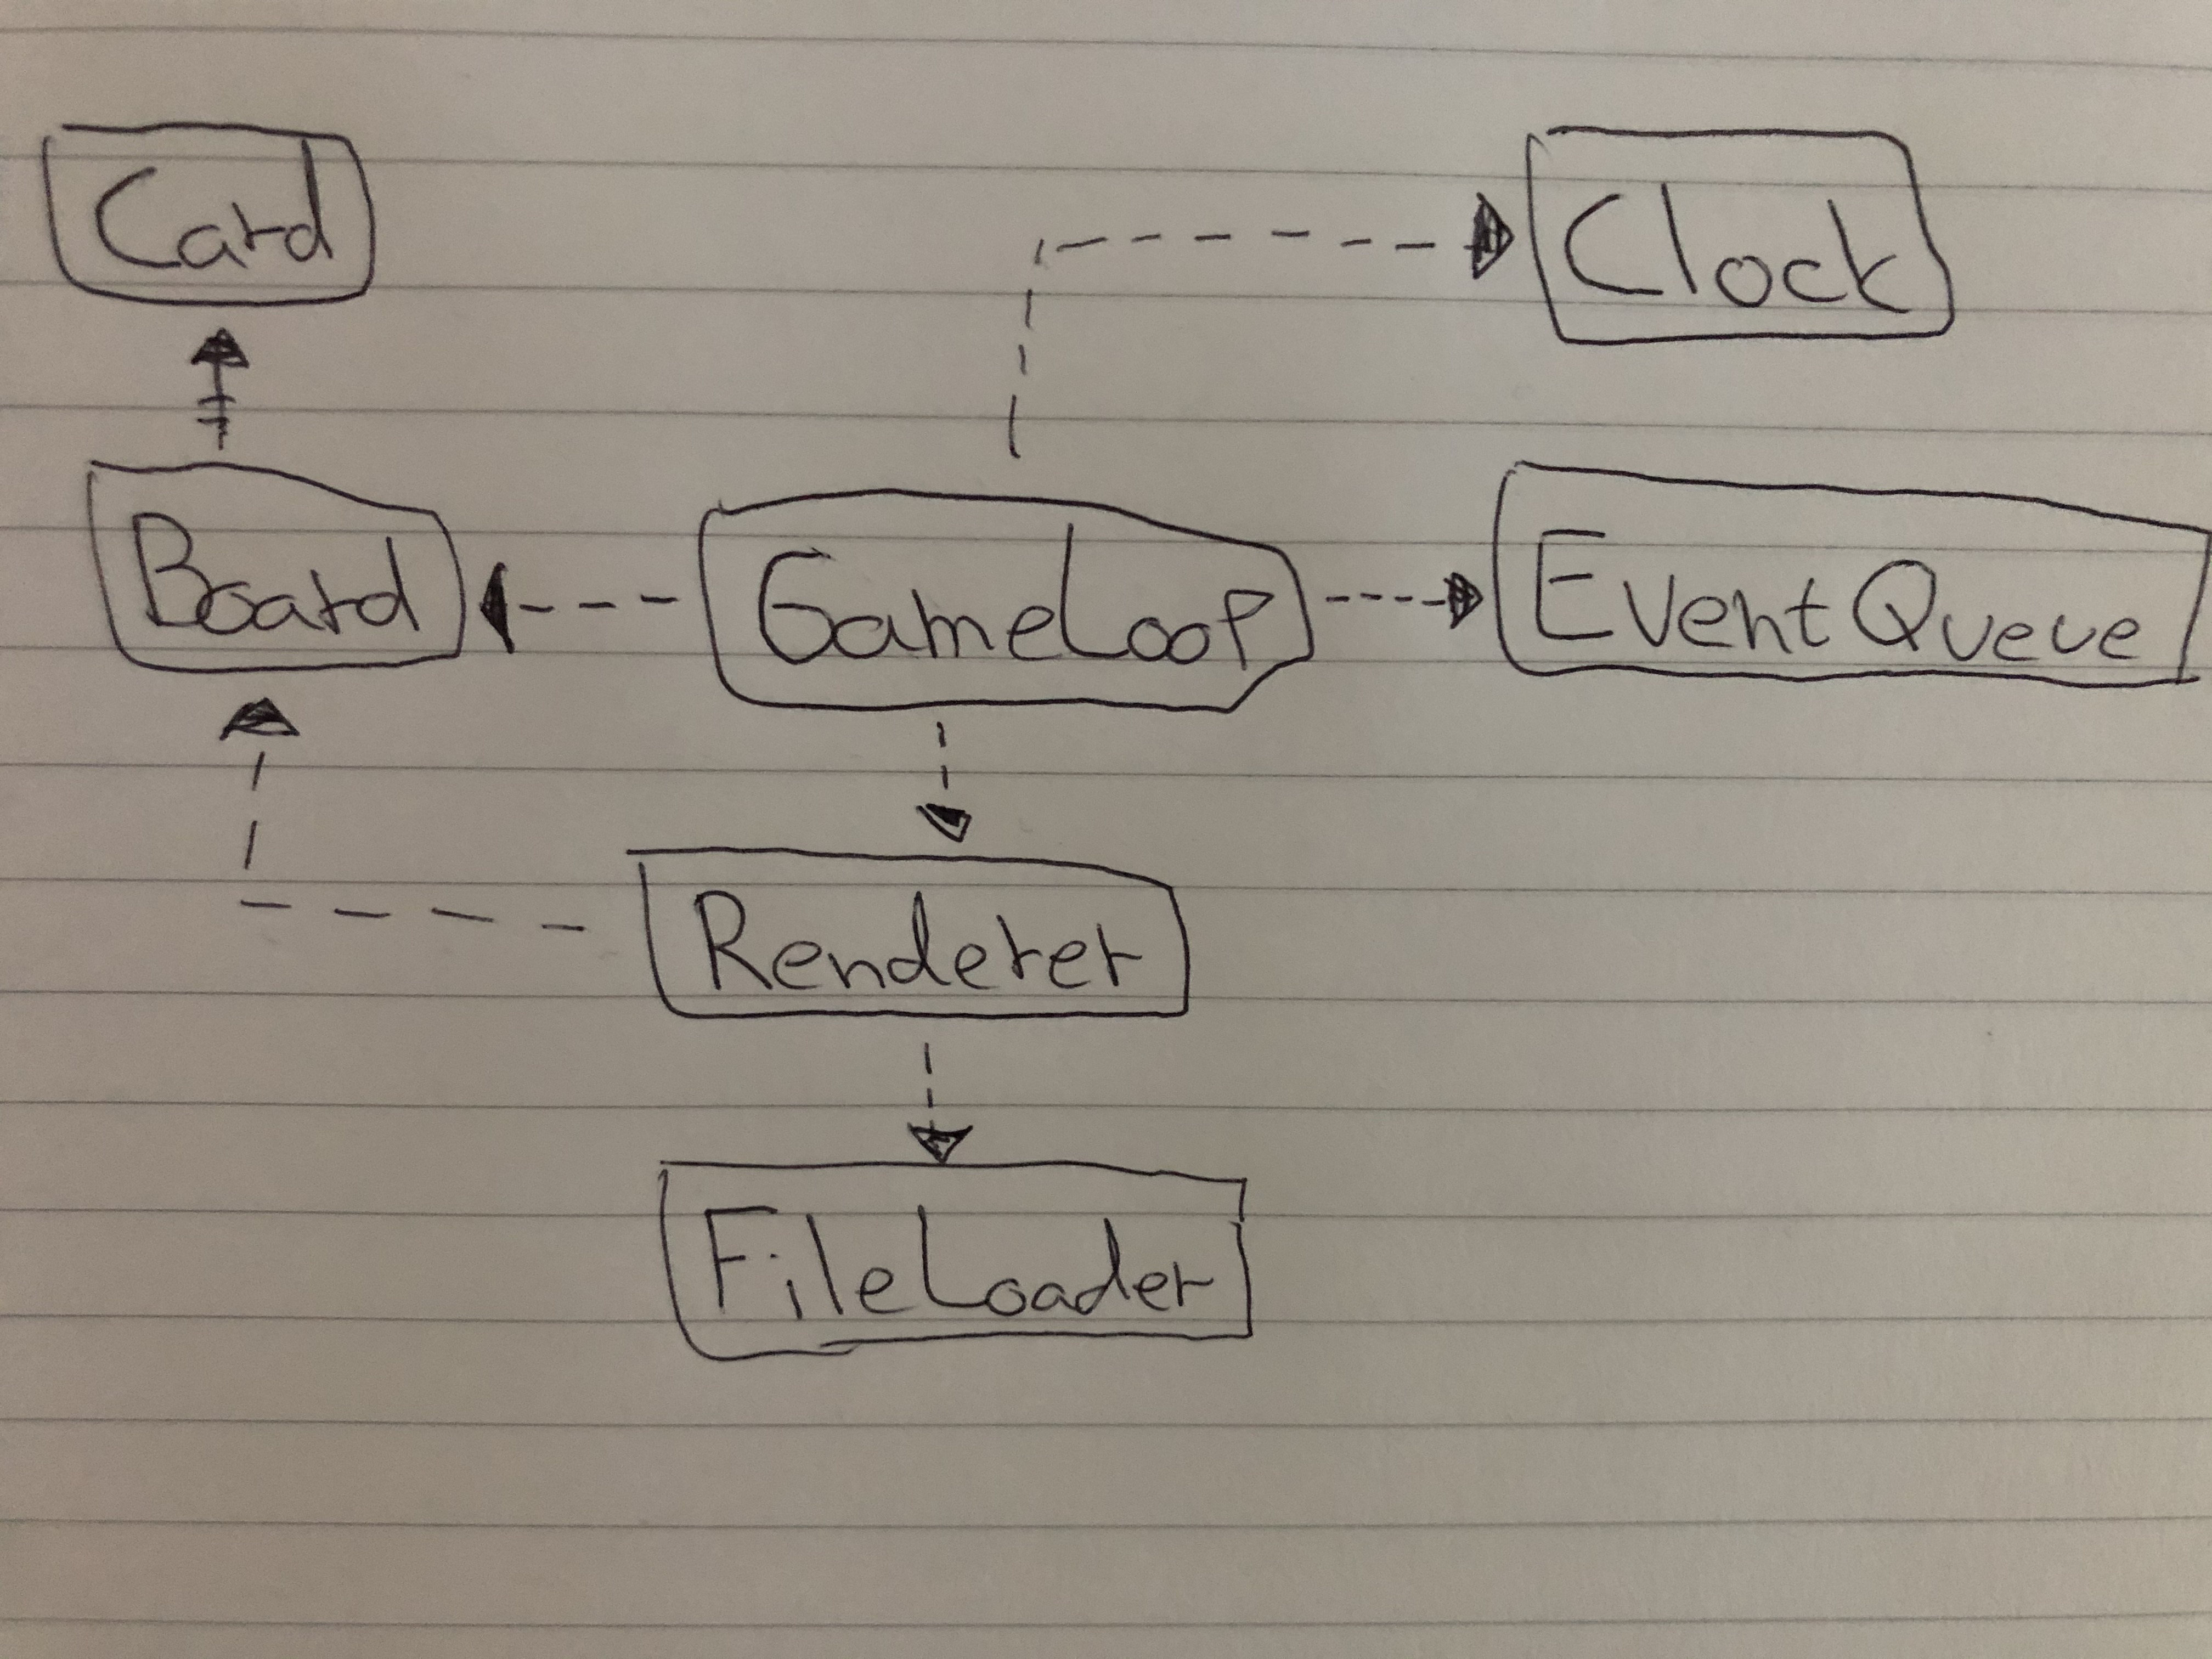 Card
Clock
Board
GameLoop
EventQueue
Renderer
FileLoader